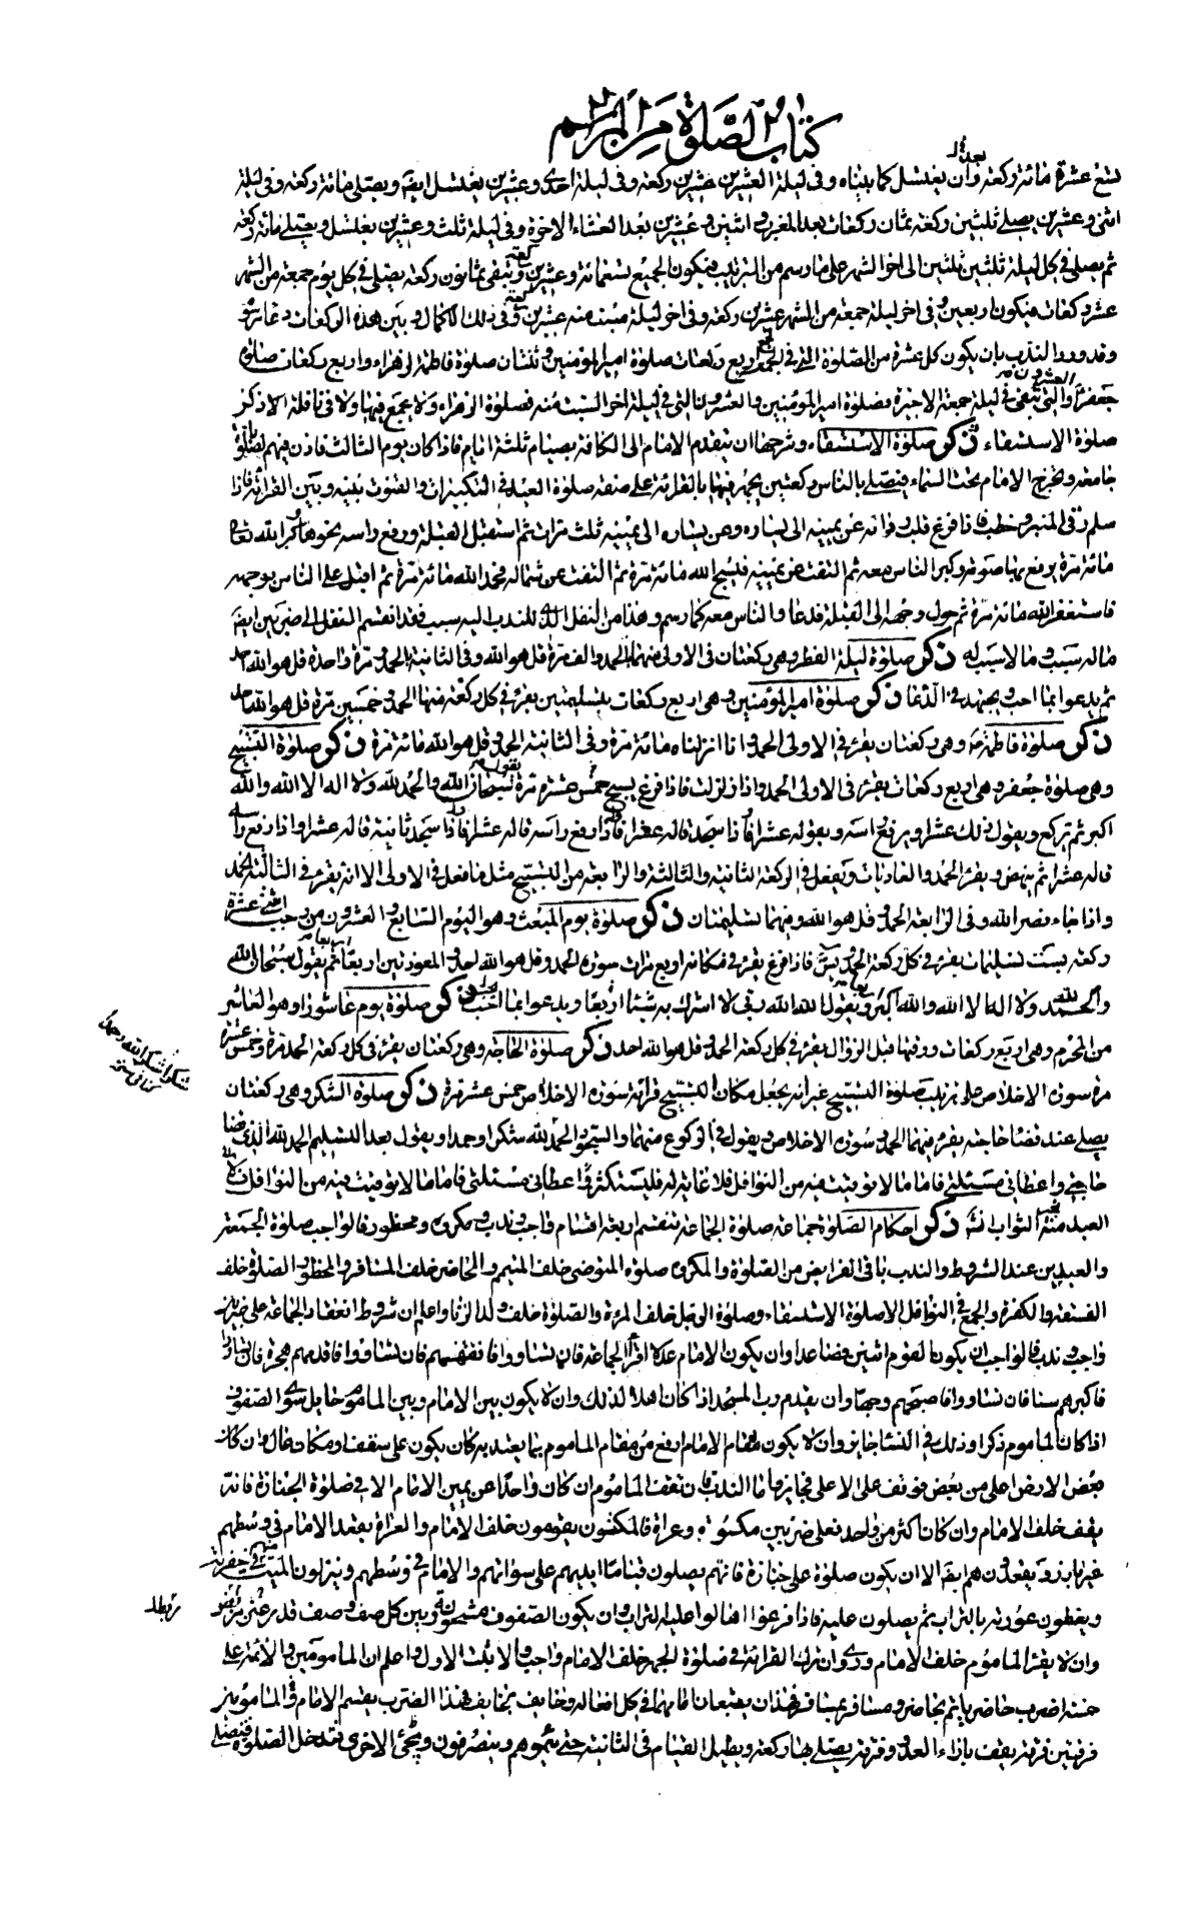 كتاب الصلوة من المراسم
تسع عشرة مائة ركعة وان يغتسل كما بيناه وفى ليلة العشرين عشرين ركعة وفى ليلة احدى وعشرين يغتسل ايضا ويصلى مائة ركعة وفى ليلة
اثنى وعشرين يصلى ثلثين ركعة ثمان ركعات بعد المغرب واثنين وعشرين بعد العشاء الاخرة وفى ليلة ثلث وعشرين يغتسل ويصلى مائة ركعة
ثم يصلى فى كل ليلة ثلثين ثلثين الى اخر الشهر على ما رسم من الترتيب فيكون الجميع تسعمائة وعشرين ركعة وتبقى ثمانون ركعة يصلى فى كل يوم جمعة من الشهر
عشر ركعات فيكون اربعين وفى اخر ليلة جمعة من الشهر عشرين ركعة وفى اخر ليلة سبت منه عشرين ركعة وفى ذلك الكمال وبين هذه الركعات دعاء
وقد ورد الندب بان يكون كل عشرة من الصلوة التى فى الجمع اربع ركعات صلوة امير المؤمنين وثنتان صلوة فاطمة الزهراء واربع ركعات صلوة
جعفر والتى تبقى فى ليلة جمعة الاخيرة فصلوة امير المؤمنين والعشرون التى فى ليلة اخر السبت منه فصلوة الزهراء ولا يجمع فيها ولا فى نافلة الا ذكر
صلوة الاستسقاء ذكر صلوة الاستسقاء وشرحها ان يتقدم الامام الى الكافة بصيام ثلثة ايام فاذا كان يوم الثالث فاذن فيهم لصلوة
جامعة ويخرج الامام تحت السماء فيصلى بالناس ركعتين يجهر فيهما بالقرائة على صفة صلوة العيد فى التكبيرات والقنوت بينه وبين القرائة فاذا
سلم رقى المنبر وخطب فاذا فرغ قلب ردائه عن يمينه الى يساره وعن يساره الى يمينه ثلث مرات ثم استقبل القبلة ورفع راسه نحوها وكبر الله تعالى
مائة مرة يرفع بها صوته وكبر الناس معه ثم التفت عن يمينه فسبح الله مائة مرة ثم التفت عن شماله فحمد الله مائة مرة ثم اقبل على الناس بوجهه
فاستغفر الله مائة مرة ثم حول وجهه الى القبلة فدعا والناس معه كما رسم وهذا من النفل الذى للندب اليه سبب فقد انقسم النفل الى ضربين ايضا
ماله سبب وما لا سبب له ذكر صلوة ليلة الفطر وهى ركعتان فى الاولى منهما الحمد والف مرة قل هو الله وفى الثانية الحمد ومرة واحدة قل هو الله احد
ثم يدعو بما احب ويجتهد فى الدعاء ذكر صلوة امير المؤمنين وهى اربع ركعات بتسليمتين يقرء فى كل ركعة منها الحمد وخمسين مرة قل هو الله احد
ذكر صلوة فاطمة وهى ركعتان يقرء فى الاولى الحمد وانا انزلناه مائة مرة وفى الثانية الحمد وقل هو الله مائة مرة ذكر صلوة التسبيح
وهى صلوة جعفر وهى اربع ركعات يقرء فى الاولى الحمد واذا زلزلت فاذا فرغ يسبح خمس عشرة مرة يقول سبحان الله والحمد لله ولا اله الا الله والله
اكبر ثم يركع ويقول ذلك عشرا ويرفع راسه ويقوله عشرا فاذا سجد قاله عشرا فاذا رفع راسه قاله عشرا فاذا سجد ثانية قاله عشرا واذا رفع راسه
قاله عشرا ثم ينهض ويقرء الحمد والعاديات ويفعل فى الركعة الثانية والثالثة والرابعة من التسبيح مثل ما فعل فى الاولى الا انه يقرء فى الثالثة الحمد
واذا جاء نصر الله وفى الرابعة الحمد وقل هو الله وفيهما تسليمتان ذكر صلوة يوم المبعث وهو اليوم السابع والعشرون من رجب اثنتى عشرة
ركعة بست تسليمات يقرء فى كل ركعة الحمد ويس فاذا فرغ يقرء فى مكانه اربع مرات سورة الحمد وقل هو الله احد والمعوذتين اربعا ثم يقول سبحان الله
والحمد لله ولا اله الا الله والله اكبر ويقول الله الله ربى لا اشرك به شيئا اربعا ويدعو بما احب ذكر صلوة يوم عاشورا وهو العاشر
من المحرم وهى اربع ركعات ووقتها قبل الزوال يقرء فى كل ركعة الحمد وقل هو الله احد ذكر صلوة الحاجة وهى ركعتان يقرء فى كل ركعة الحمد مرة وخمس عشرة
مرة سورة الاخلاص على ترتيب صلوة التسبيح غير انه يجعل مكان التسبيح قرائة سورة الاخلاص خمس عشرة مرة ذكر صلوة الشكر وهى ركعتان
يصلى عند قضاء حاجته يقرء فيهما الحمد وسورة الاخلاص ويقول فى الركوع منهما والسجود الحمد لله شكرا وحمدا ويقول بعد التسليم الحمد لله الذى قضا
حاجتى واعطانى مسئلتى فاما ما لا توقيت فيه من النوافل فلا غاية له فليستكثر
العبد منه الثواب ذكر احكام الصلوة جماعة صلوة الجماعة تنقسم اربعة اقسام واجب وندب ومكروه ومحظور فالواجب صلوة الجمعة
والعيدين عند الشروط والندب باقى الفرايض من الصلوة والمكروه صلوة المتوضى خلف المتيمم والحاضر خلف المسافر والمحظور الصلوة خلف
الفسقة والكفرة والجمع فى النوافل الا صلوة الاستسقاء وصلوة الرجل خلف المرءة والصلوة خلف ولد الزنا واعلم ان شروط انعقاد الجماعة على ضربين
واجب وندب فالواجب ان يكون القوم اثنين فصاعدا وان يكون الامام عدلا اقرأ الجماعة فان تساووا فافقههم فان تساووا فاقدمهم هجرة فان تساووا
فاكبرهم سنا فان تساووا فاصبحهم وجها وان يقدم رب المسجد اذا كان اهلا لذلك وان لا يكون بين الامام وبين الماموم حايل سوى الصفوف
اذا كان الماموم ذكرا وذلك فى النساء جايز وان لا يكون مقام الامام ارفع من مقام الماموم بما يعتد به كان يكون على سقف او مكان عال وان كان
بعض الارض اعلى من بعض فوقف على الاعلى فجايز واما الندب فان تقف الماموم ان كان واحدا عن يمين الامام الا فى صلوة الجنازة فانه
يقف خلف الامام وان كان اكثر من واحد فعلى ضربين مكسوة وعراة فالمكسون يقومون خلف الامام والعراة يقعد الامام فى وسطهم
غير بارز ويقعدون هم ايضا الا ان يكون صلوة على جنازة فانهم يصلون قياما ايديهم على سوآتهم والامام فى وسطهم وينزلون الميت فى حفرته
ويغطون عورته بالتراب ثم يصلون عليه فاذا فرغوا اهالوا عليه التراب وان يكون الصفوف مشحونة وبين كل صف وصف قدر مربض
وان لا يقرأ الماموم خلف الامام وروى ان ترك القرائة فى صلوة الجهر خلف الامام واجب والاثبت الاول واعلم ان المامومين والائمة على
خمسة اضرب حاضر ياتم بحاضر ومسافر بمسافر فهذان يتبعان فى كل افعاله وخايف بخايف فهذا الضرب يقسم الامام فيه المامومين
فرقتين فرقة يقف بازاء العدو وفرقة يصلى بها ركعة ويطيل القيام فى الثانية حتى يتموهم وينصرفون وتجئ الاخرى فتدخل الصلوة فيصلى